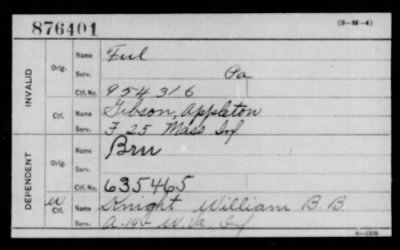 876401
(3-M-4)
INVALID
Orig.
Name Ful
Serv. Pa
Ctf. No. 954316
Ctf.
Name Gibson, Appleton
Serv. F 25 Mass Inf
DEPENDENT
Orig.
Name Bru
Serv.
Ctf. No. 635465
W Ctf.
Name Knight William B. B.
Serv. A. 14 W. Va. Inf